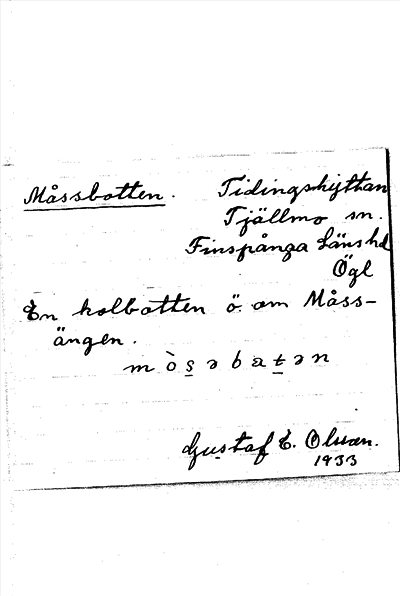 Måssbotten. Tidingshyttan
Tjällmo sn.
Finspånga Läns hd
Ögl
En kolbotten ö. om Måss-
ängen.
m ò s̲ ə b a t̲ ə n
Gustaf E. Olsson.
1933